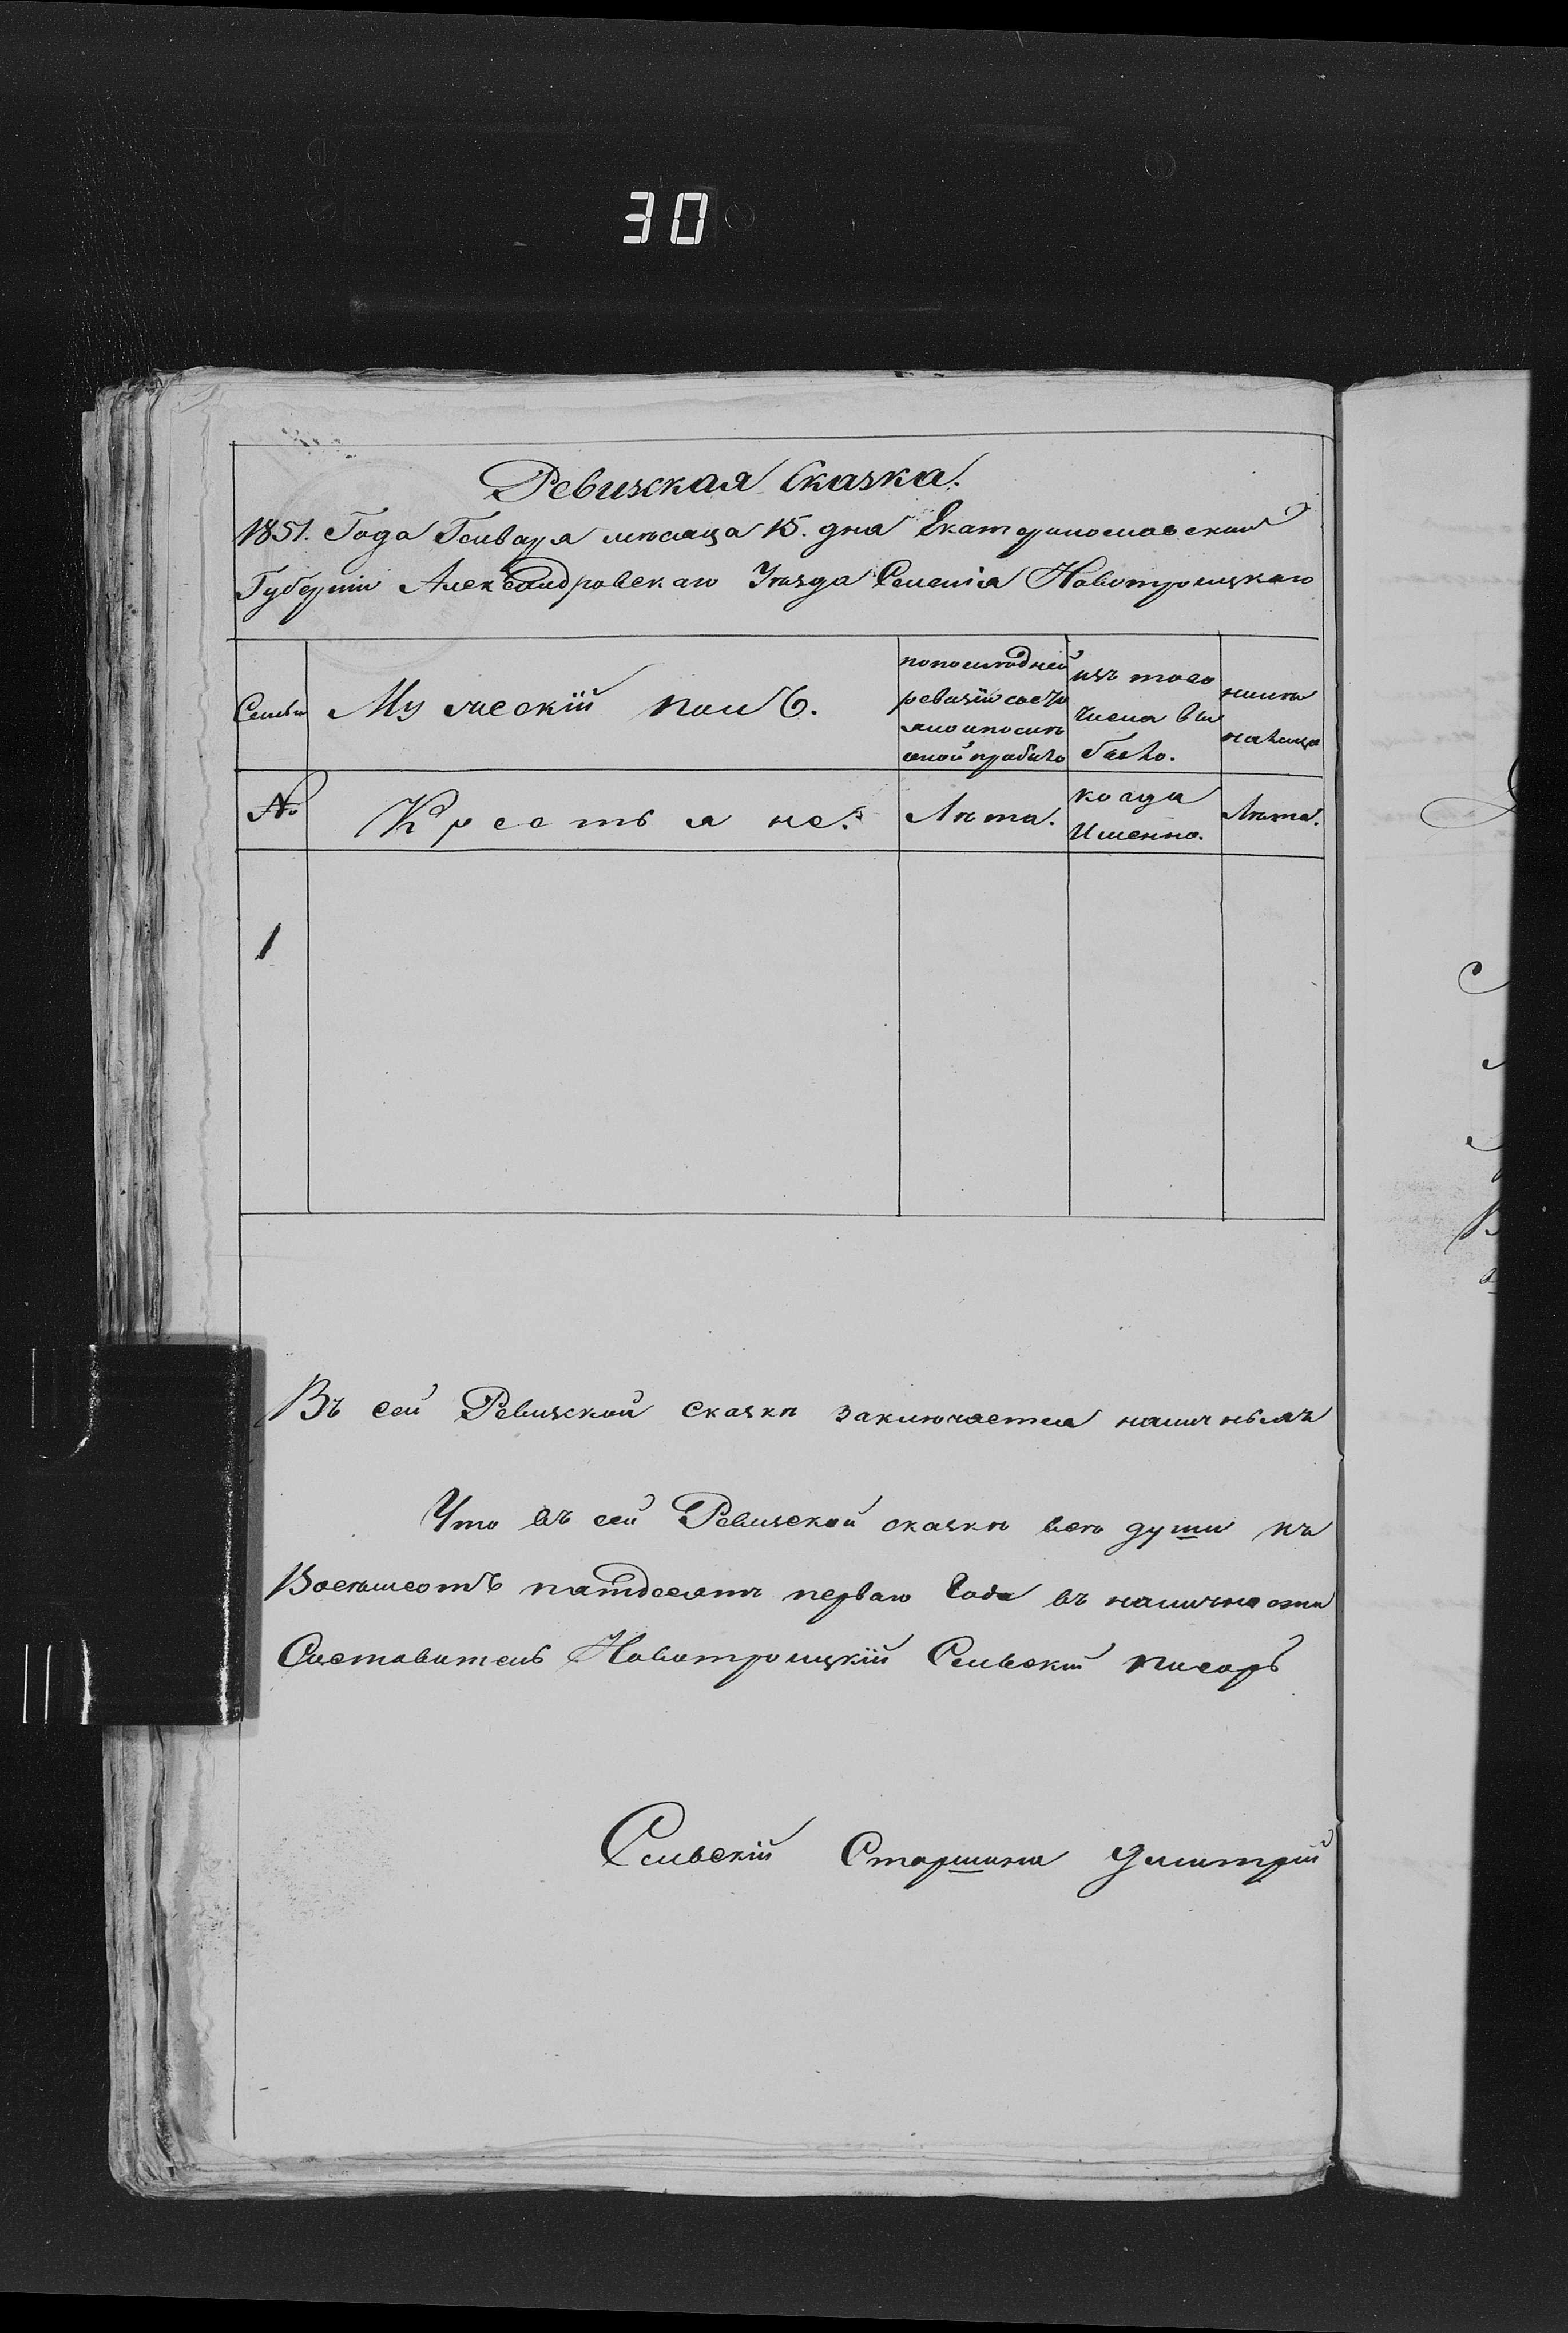 30
Ревизская Сказка.
1851. Года Генваря месяца 15. дня Екатеринославской
Губернии Александровскаго Уезда Селенія Новотроицкаго
Семьи
Мужескій полъ.
по последней
ревизіи состо
яло и после
оной прибыло
изъ того
числа вы
было.
ныне
налицо
№
Крестьяне.
Лета.
когда
Именно.
Лета.
1
Въ сей Ревизской сказки заключается наличныхъ
Что въ сей Ревизской сказки все души къ
Восемьсотъ пятдесятъ перваго Года въ наличности
Составитель Новотроицкій Сельскій писарь
Сельскій Старшина Дмитрій